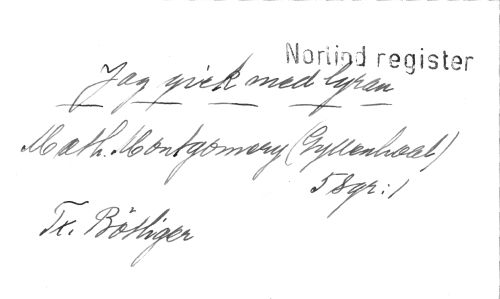 Nortind register
Jag gick med lyran
Math. Montgomery (Gyllenhaal)
5 Sgr: 1
Tx. Böttiger